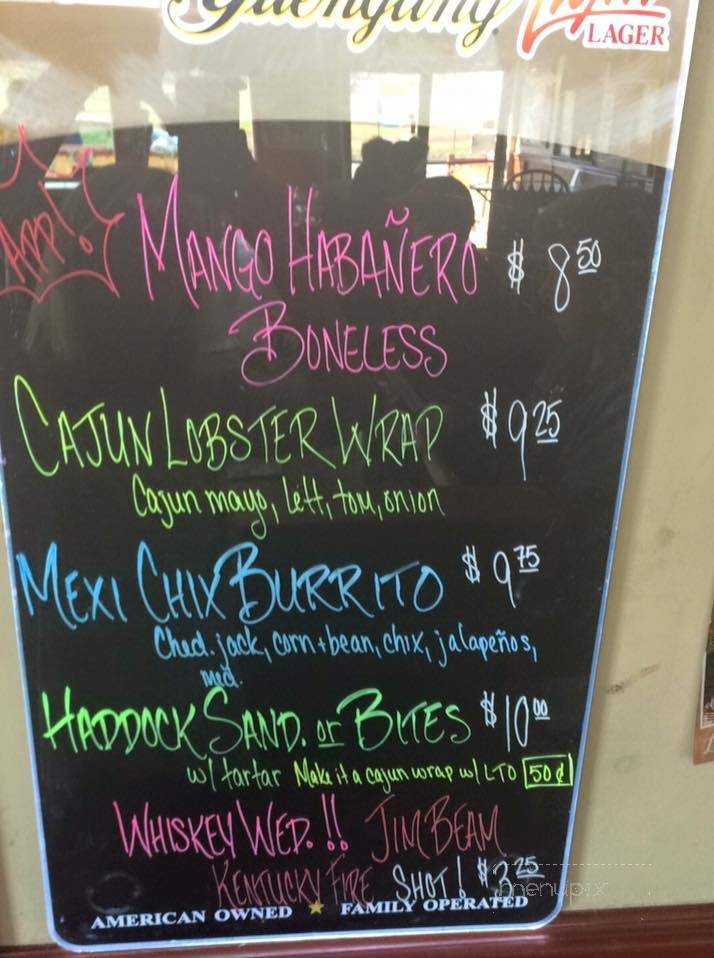 Yuengling Light
LAGER
APP!
MANGO HABAÑERO $8.50
BONELESS
CAJUN LOBSTER WRAP $9.25
Cajun mayo, Lett, tom, onion
MEXI CHIX BURRITO $9.75
Ched. jack, corn + bean, chix, jalapeños,
med.
HADDOCK SAND. or BITES $10.00
w/ tartar Make it a cajun wrap w/ LTO 50¢
WHISKEY WED. !! JIM BEAM
KENTUCKY FIRE SHOT! $3.25
menupix
AMERICAN OWNED ★ FAMILY OPERATED